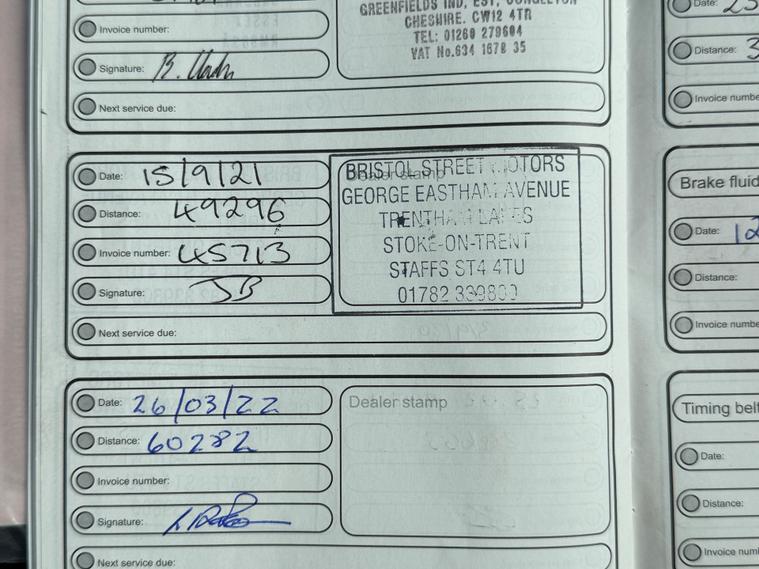 GREENFIELDS IND, EST, CONGLETON
CHESHIRE. CW12 4TR
TEL: 01260 279604
VAT No.634 1678 35
Invoice number:
Signature:
Next service due:
Date: 15/9/21
Distance: 49296
Invoice number: 45713
Signature: JB
Next service due:
Dealer stamp
BRISTOL STREET MOTORS
GEORGE EASTHAM AVENUE
TRENTHAM LAKES
STOKE-ON-TRENT
STAFFS ST4 4TU
01782 339800
Date: 26/03/22
Distance: 60282
Invoice number:
Signature:
Next service due:
Dealer stamp
Date: 23
Distance: 3
Invoice numbe
Brake fluid
Date: 12
Distance:
Invoice numbe
Timing belt
Date:
Distance:
Invoice num